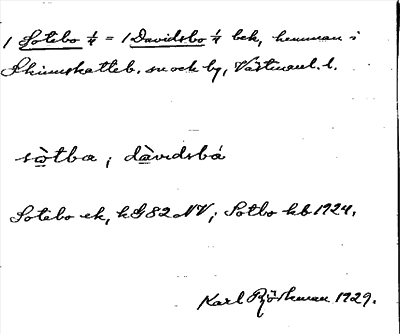 1 Sotebo 1/4 = 1 Davidsbo 1/4 bek, hemman i
Skinnskatteb. sn ock by, Västmanl. l.
sòtba, dàvidsbá
Sotebo ek, hG 82 NV; Sotbo kb 1924.
Karl Björkman 1929.